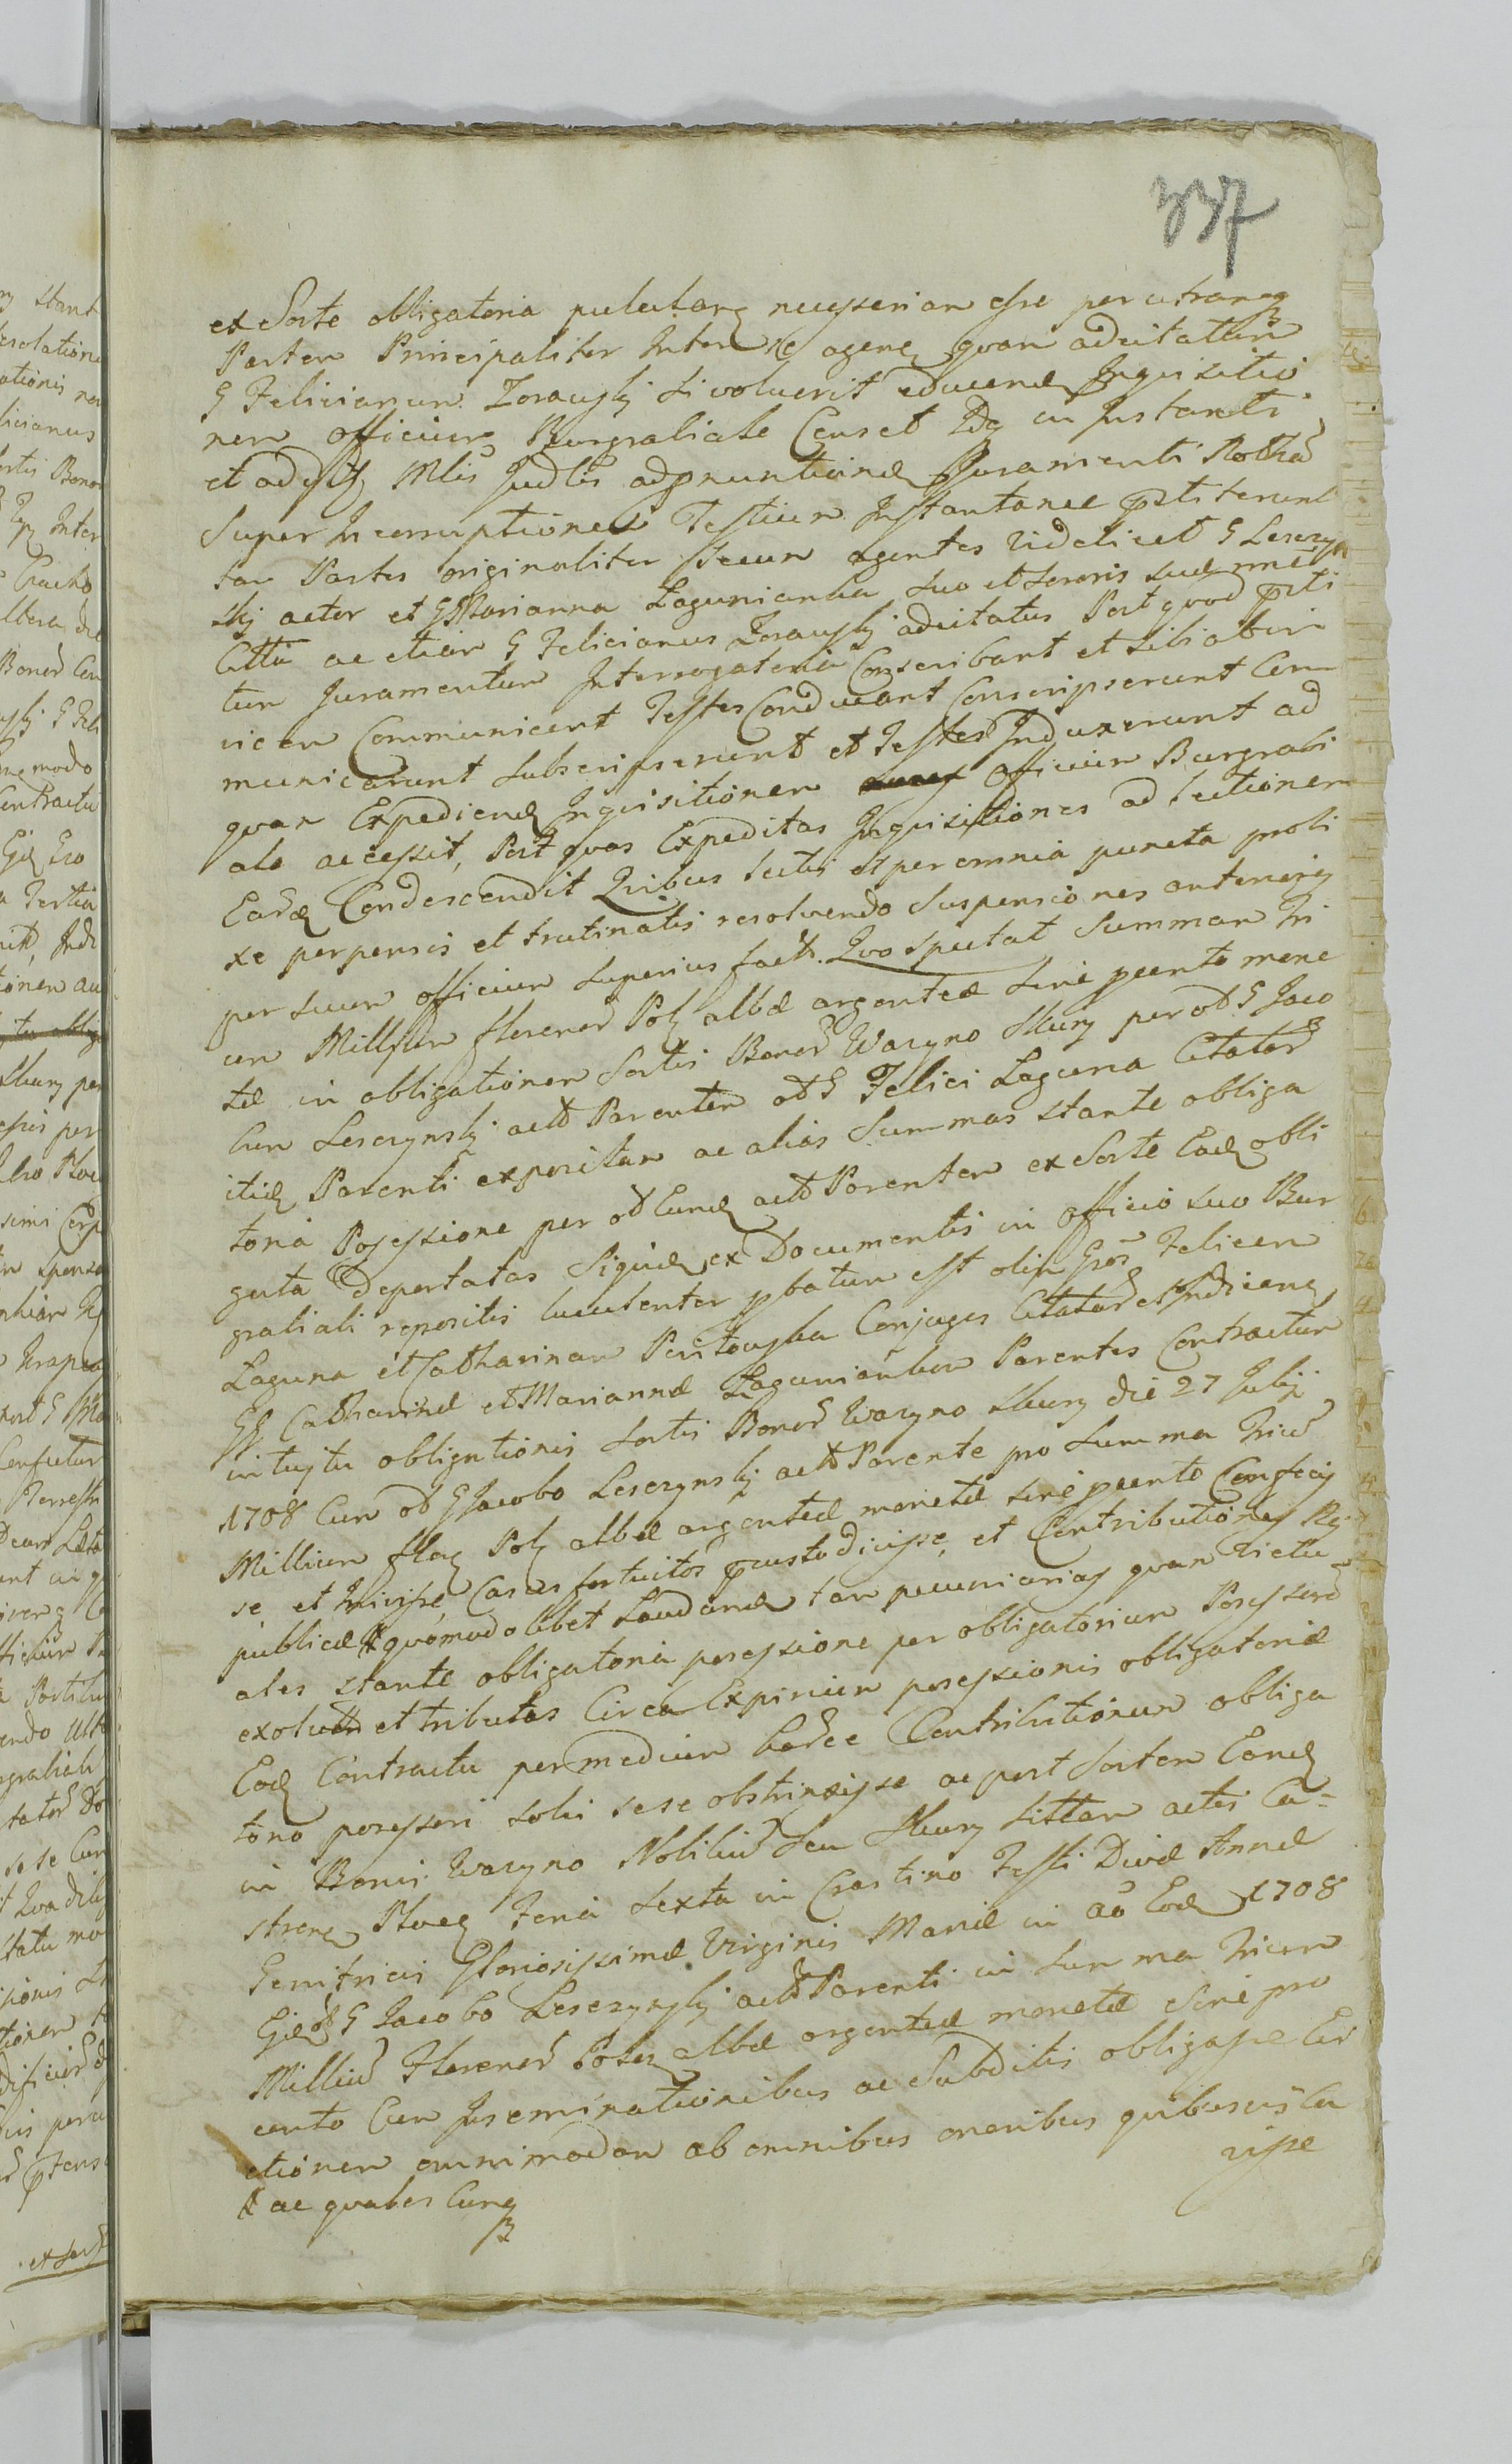 337
ex Sorte obligatoria pulutarq necessariam esse per utramq
Partem Principaliter Inter se agenq quam adcitatum
G Felicianum Zorawskj si voluerit educend Inquisitio
nem officium Burgrabiale Censet Idq in Instanti
et ad Mtis Judtis adpnuntiand Juramenti Rothã
Super Incorruptione Testium Instantanee pstiterunt
tam Partes originaliter secum agentes videlicet G Lesczyn
skj actor et G Marianna Lagunianka suo et Sororis suæ nne
Citta ac etiam G Felicianus Zorawskj adcitatus Post quod psti
tum Juramentum Interrogatoria Conscribant et sibi abin
vicem Communicent Testes Conducant Conscripserunt Com
municarunt subscripserunt et Testes Induxerunt ad
quam Expediend Inquisitionem officium Burgrabi
ale accessit, Post quas Expeditas Inquisitiones ad lectionem
Eard Condescendit Quibus lectis et per omnia puncta proli
xe perpensis et trutinatis resolvendo Suspensiones anterioris
per suum officium superius fact. Quo spectat Summam Tri
um Millium florenor Pol albæ argenteæ sine pcento mone
tæ in obligationem Sortis Bonor Wazyno Skury per od G Jaco
bum Lesczynskj actt Parentem od G Felici Laguna Citator
itid Parenti expositam ac alias Summas stante obliga
toria Possessione per od Eund actt Parentem ex Sorte Ead obli
gata Deportatas Siquid ex Documentis in officio suo Bur
grabiali repositis luculenter pbatum est olim Gros Felicem
Laguna et Catharinam Conjuges Citator et Indicanq
GG Catharinæ et Mariannæ Lagunianken Parentes Contractum
intuitu obligationis Sortis Bonor Wazyno Skury die 27 Julij
1708 Cum od G Jacobo Lesczynskj actt Parente pro Summa Triu
Millium flor Pol albæ argenteæ monetæ sine pcento Confecis
se et Inivisse, Casus fortuitos pcustodivisse, et Contributiones Rei
publicæ X quomodolibet Laudand tam pecuniarias quam victu
ales stante obligatoria possessione per obligatorium Possessore
exolutt et tributas Circa Expirium possessionis obligatoriæ
Eod Contractu per medium Contributionum obliga
torio possessori solvi sese obstrinxisse ac post Sortem Eand
in Bonis Wazyno Nobilium seu Skury sittam actis Ca=
stren Ploc Feria Sexta in Crastino Festi Divæ Annæ
Genitricis Gloriosissimæ Virginis Mariæ in aõ Eod 1708
G Jacobo Lesczynskj actt Parenti in Summa Trium
Milliu Florenor Pol albæ argenteæ monetæ sine pro
cento Cum Inseminationibus ac Subditis obligasse Evi
ctionem omnimodam ab omnibus oneribus quibusvis Ca
visse
X ac qualescunq